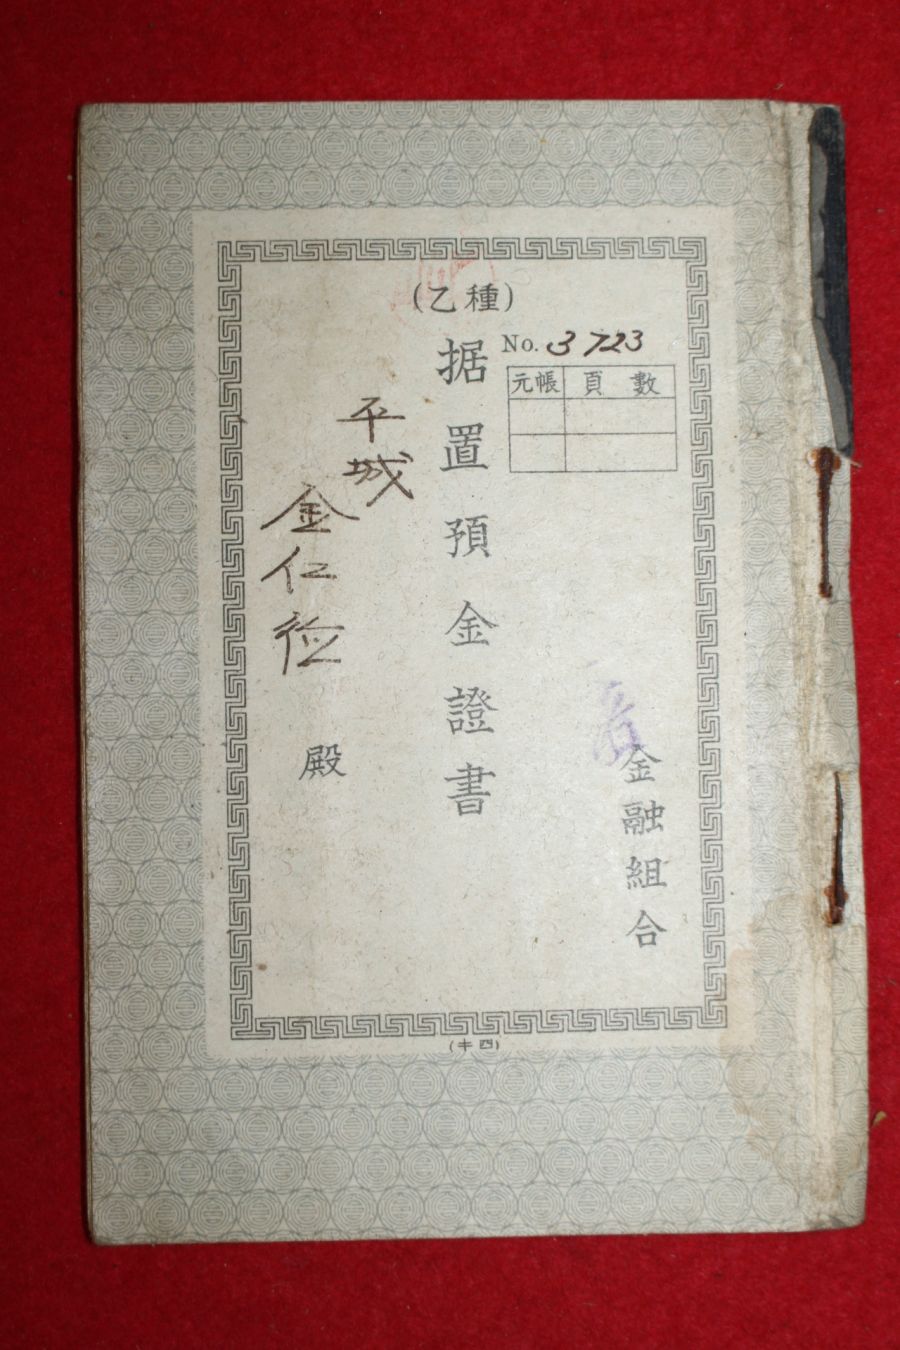 (乙種)
No. 3723
元帳 頁數
据置預金證書
金融組合
平城
金仁
殿